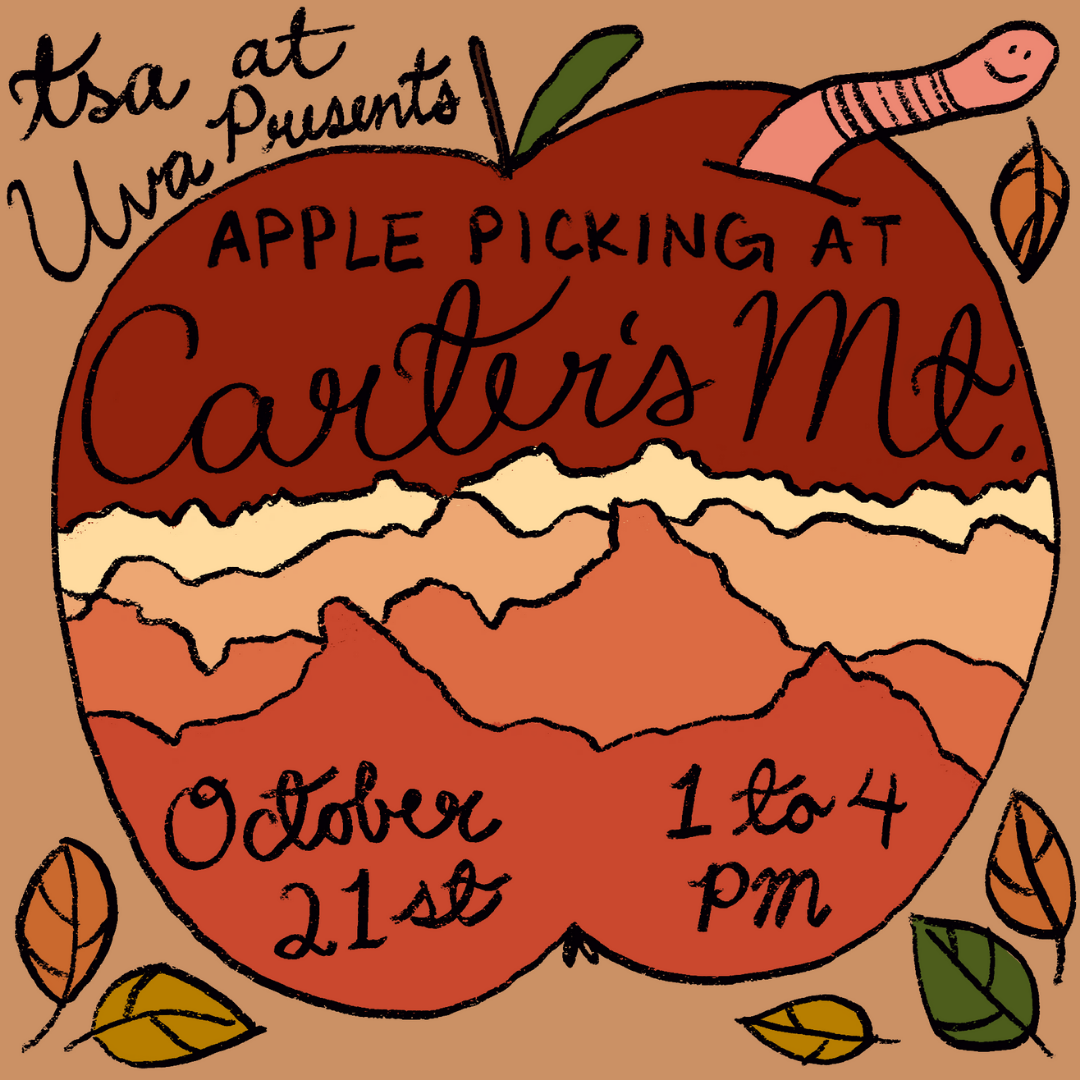 tsa at
Uva Presents
APPLE PICKING AT
Carter's Mt.
October
21st
1 to 4
pm